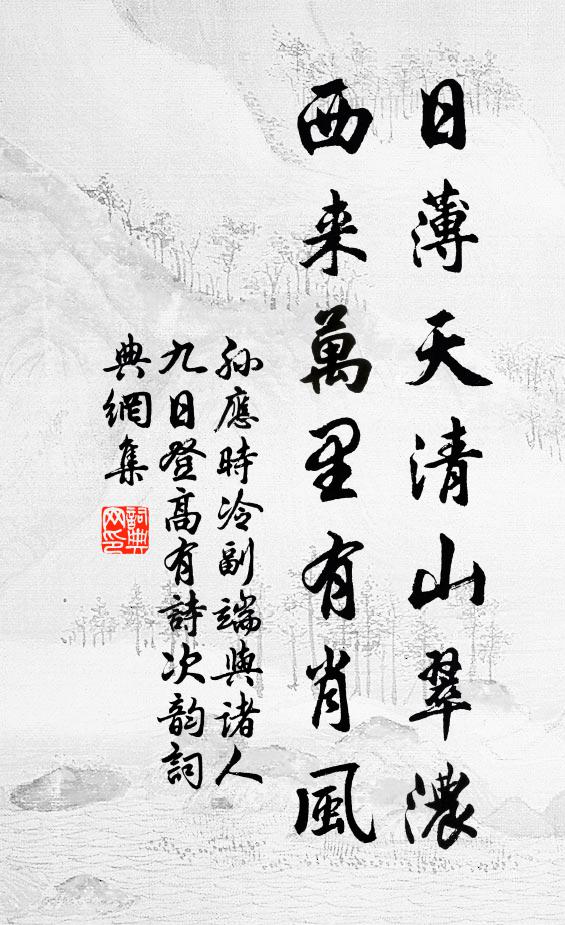 日薄天清山翠濃
西来萬里有肖風
孙應時冷副端與诸人
九日登高有詩次韵詞
典網集
詞典
网印